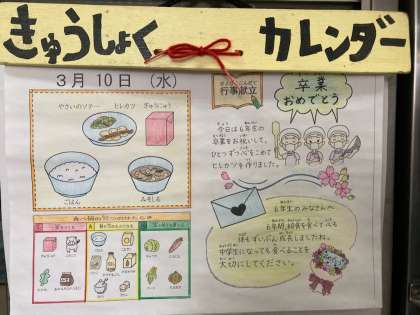 きゅうしょく カレンダー
3月10日 (水)
やさいのソテー ヒレカツ ぎゅうにゅう
ごはん みそしる
行事献立
卒業
おめでとう
今日は6年生の
卒業をお祝いして、
ひとつずつ心をこめて
ヒレカツを作りました。
6年生のみなさんへ
6年間、給食を食べて心も
体もずいぶん成長しましたね。
中学生になっても食べることを
大切にしてください。